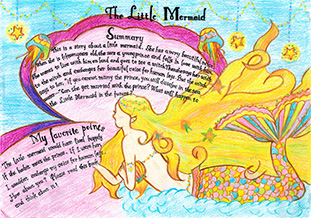 The Little Mermaid
Summary
This is a story about a little mermaid. She has a very beautiful
When she is fifteen years old, she sees a young prince and falls in love with
She wants to live with him on land and goes to see a witch. The mermaid
to the witch and exchanges her beautiful voice for human legs. But the witch
says to her, "If you cannot marry the prince, you will disappear in the sea
" Can she get married with the prince? What will happen to
the Little Mermaid in the future?
My favorite point
The little mermaid would have lived happily
if she hadn't met the prince. If I were her,
I wouldn't exchange my voice for human legs.
How about you? Please read this book
and think about it!